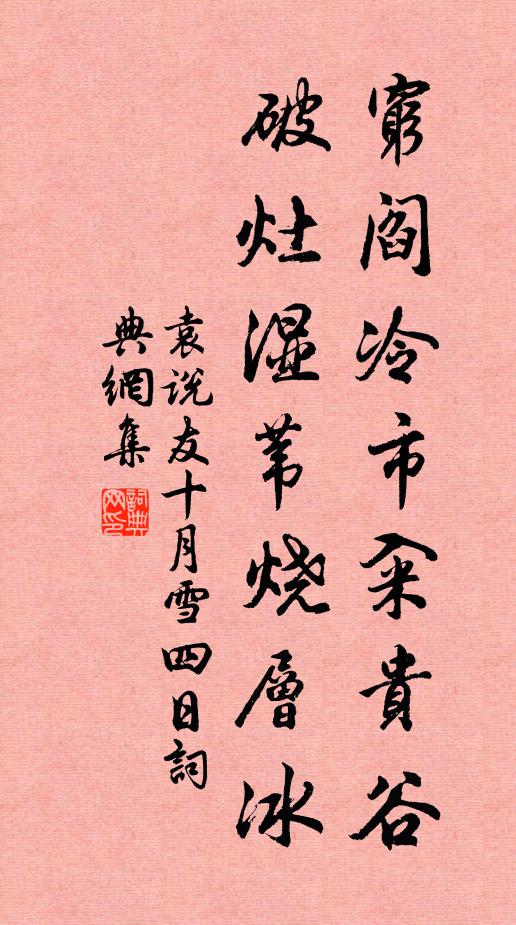 窮閻冷市籴貴谷
破灶湿苇烧層冰
袁説友十月雪四日詞
典網集
詞典
网印